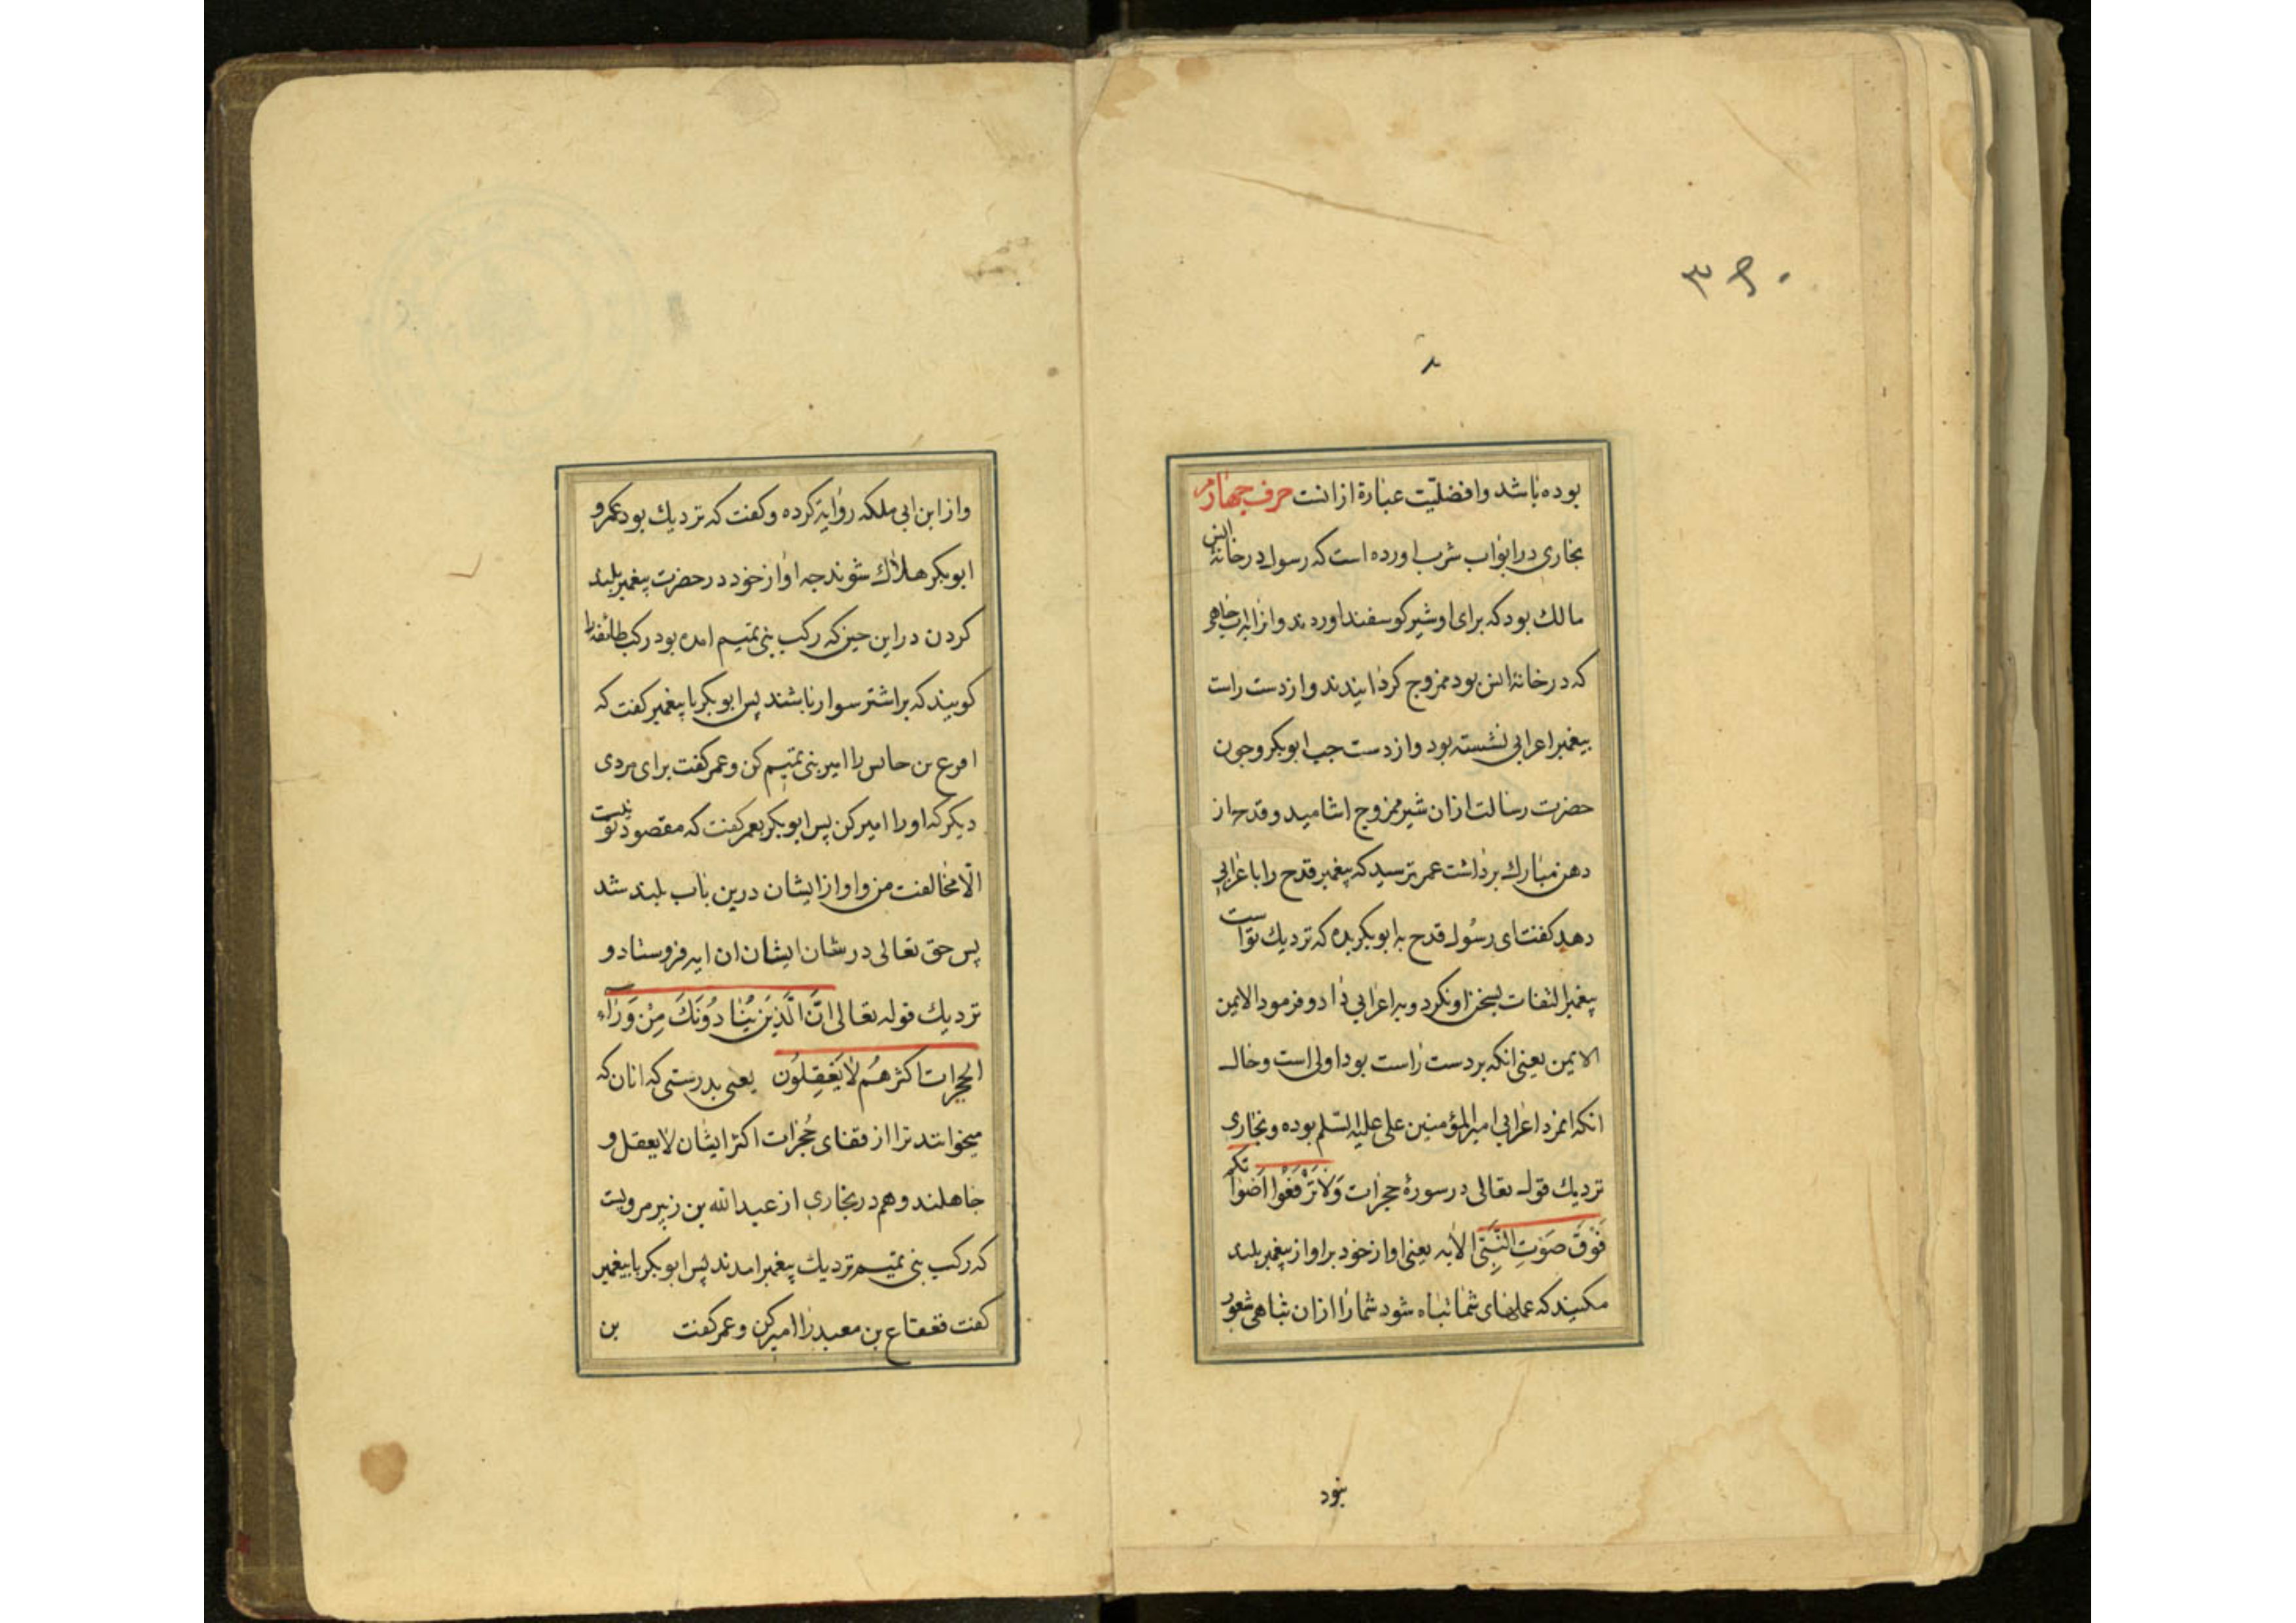 ۳۹۰
بوده باشد وافضلیّت عبارة ازانست حرف چهارم
بخاری در ابواب شرب اورده است که رسول در خانهٔ انس
مالك بود که برای او شیر کوسفند اوردند وانرا باب چاهی
که در خانهٔ انس بود ممزوج کردانیدند و از دست راست
پیغمبر اعرابی نشسته بود و از دست چپ ابوبکر و چون
حضرت رسالت ازان شیر ممزوج اشامید و قدح از
دهن مبارك برداشت عمر ترسید که پیغمبر قدح را باعرابی
دهد کفت ای رسول قدح به ابوبکر بده که نزدیك تو است
پیغمبر التفات بسخن او نکرد و به اعرابی داد و فرمود الایمن
الایمن یعنی انکه بر دست راست بود اولی است و حال
انکه انمرد اعرابی امیر المؤمنین علی علیه السّلم بوده و بخاری
نزدیك قوله تعالی در سورهٔ حجرات وَلَا تَرْفَعُوا اَصْوَاتَکُم
فَوْقَ صَوْتِ النَّبِیِّ الایه یعنی اواز خود بر اواز پیغمبر بلند
مکنید که عملهای شما تباه شود شما را ازان تباهی شعور
نبود
و از ابن ابی ملکه روایة کرده و کفت که نزدیك بود عمر و
ابوبکر هلاك شوند جه اواز خود در حضرت پیغمبر بلند
کردن در این حین که رکب بنی تمیم امده بود رکب طائفه را
کویند که بر اشتر سوار باشند پس ابوبکر با پیغمبر کفت که
اقرع بن حابس را امیر بنی تمیم کن و عمر کفت برای مردی
دیکر که اورا امیر کن پس ابوبکر بعمر کفت که مقصود تو نیست
الّا مخالفت من و اواز ایشان درین باب بلند شد
پس حق تعالی در شان ایشان ان ایه فروستاد و
نزدیك قوله تعالی اِنَّ الَّذِیَن یُنَادُونَكَ مِنْ وَرَاءِ
الحجرات اکثرهُم لَا یَعْقِلُون یعنی بدرستی که انان که
میخوانند ترا از قفای حُجرات اکثر ایشان لا یعقل و
جاهلند و هم در بخاری از عبد الله بن زبیر مرویست
که رکب بنی تمیم نزدیك پیغمبر امدند پس ابوبکر با پیغمبر
کفت قعقاع بن معبد را امیر کن و عمر کفت بن